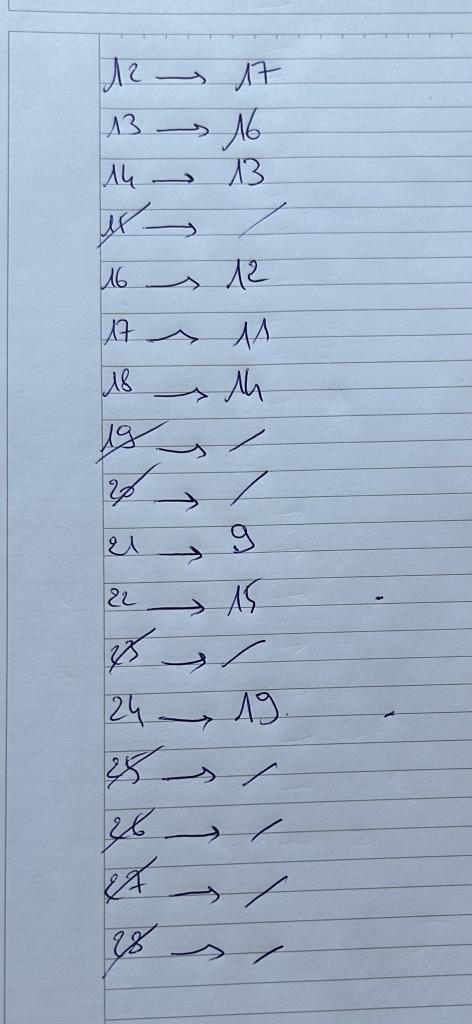 12 → 17
13 → 16
14 → 13
15 → /
16 → 12
17 → 11
18 → 14
19 → /
20 → /
21 → 9
22 → 15 -
23 → /
24 → 19. -
25 → /
26 → /
27 → /
28 → /